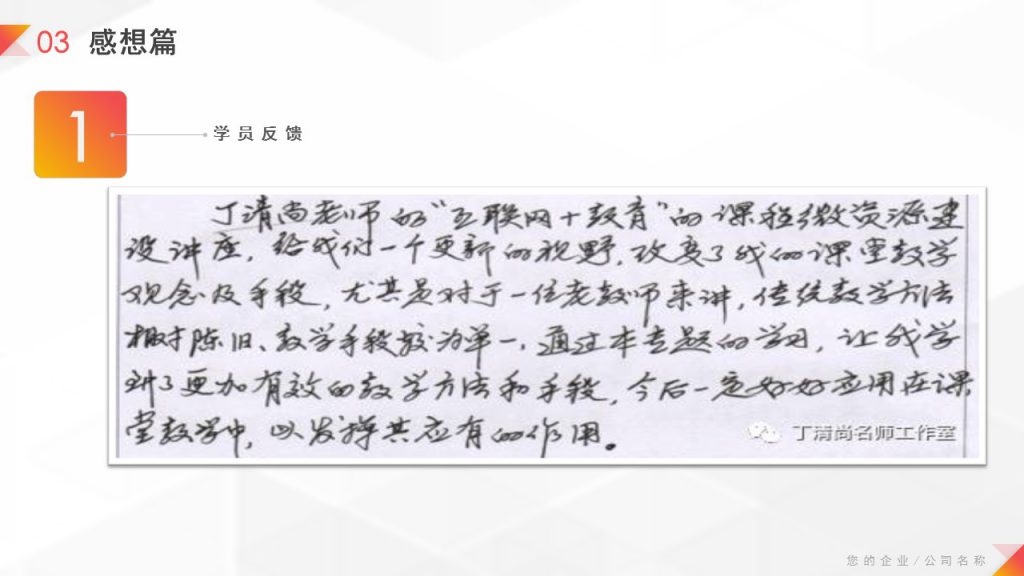 03 感想篇
1
学员反馈
丁清尚老师的“互联网+教育”的课程微资源建
设讲座，给我们一个更新的视野，改变了我的课堂教学
观念及手段，尤其是对于一位老教师来讲，传统教学方法
相对陈旧、教学手段较为单一，通过本专题的学习，让我学
到了更加有效的教学方法和手段，今后一定好好应用在课
堂教学中，以发挥其应有的作用。
丁清尚名师工作室
您的企业/公司名称